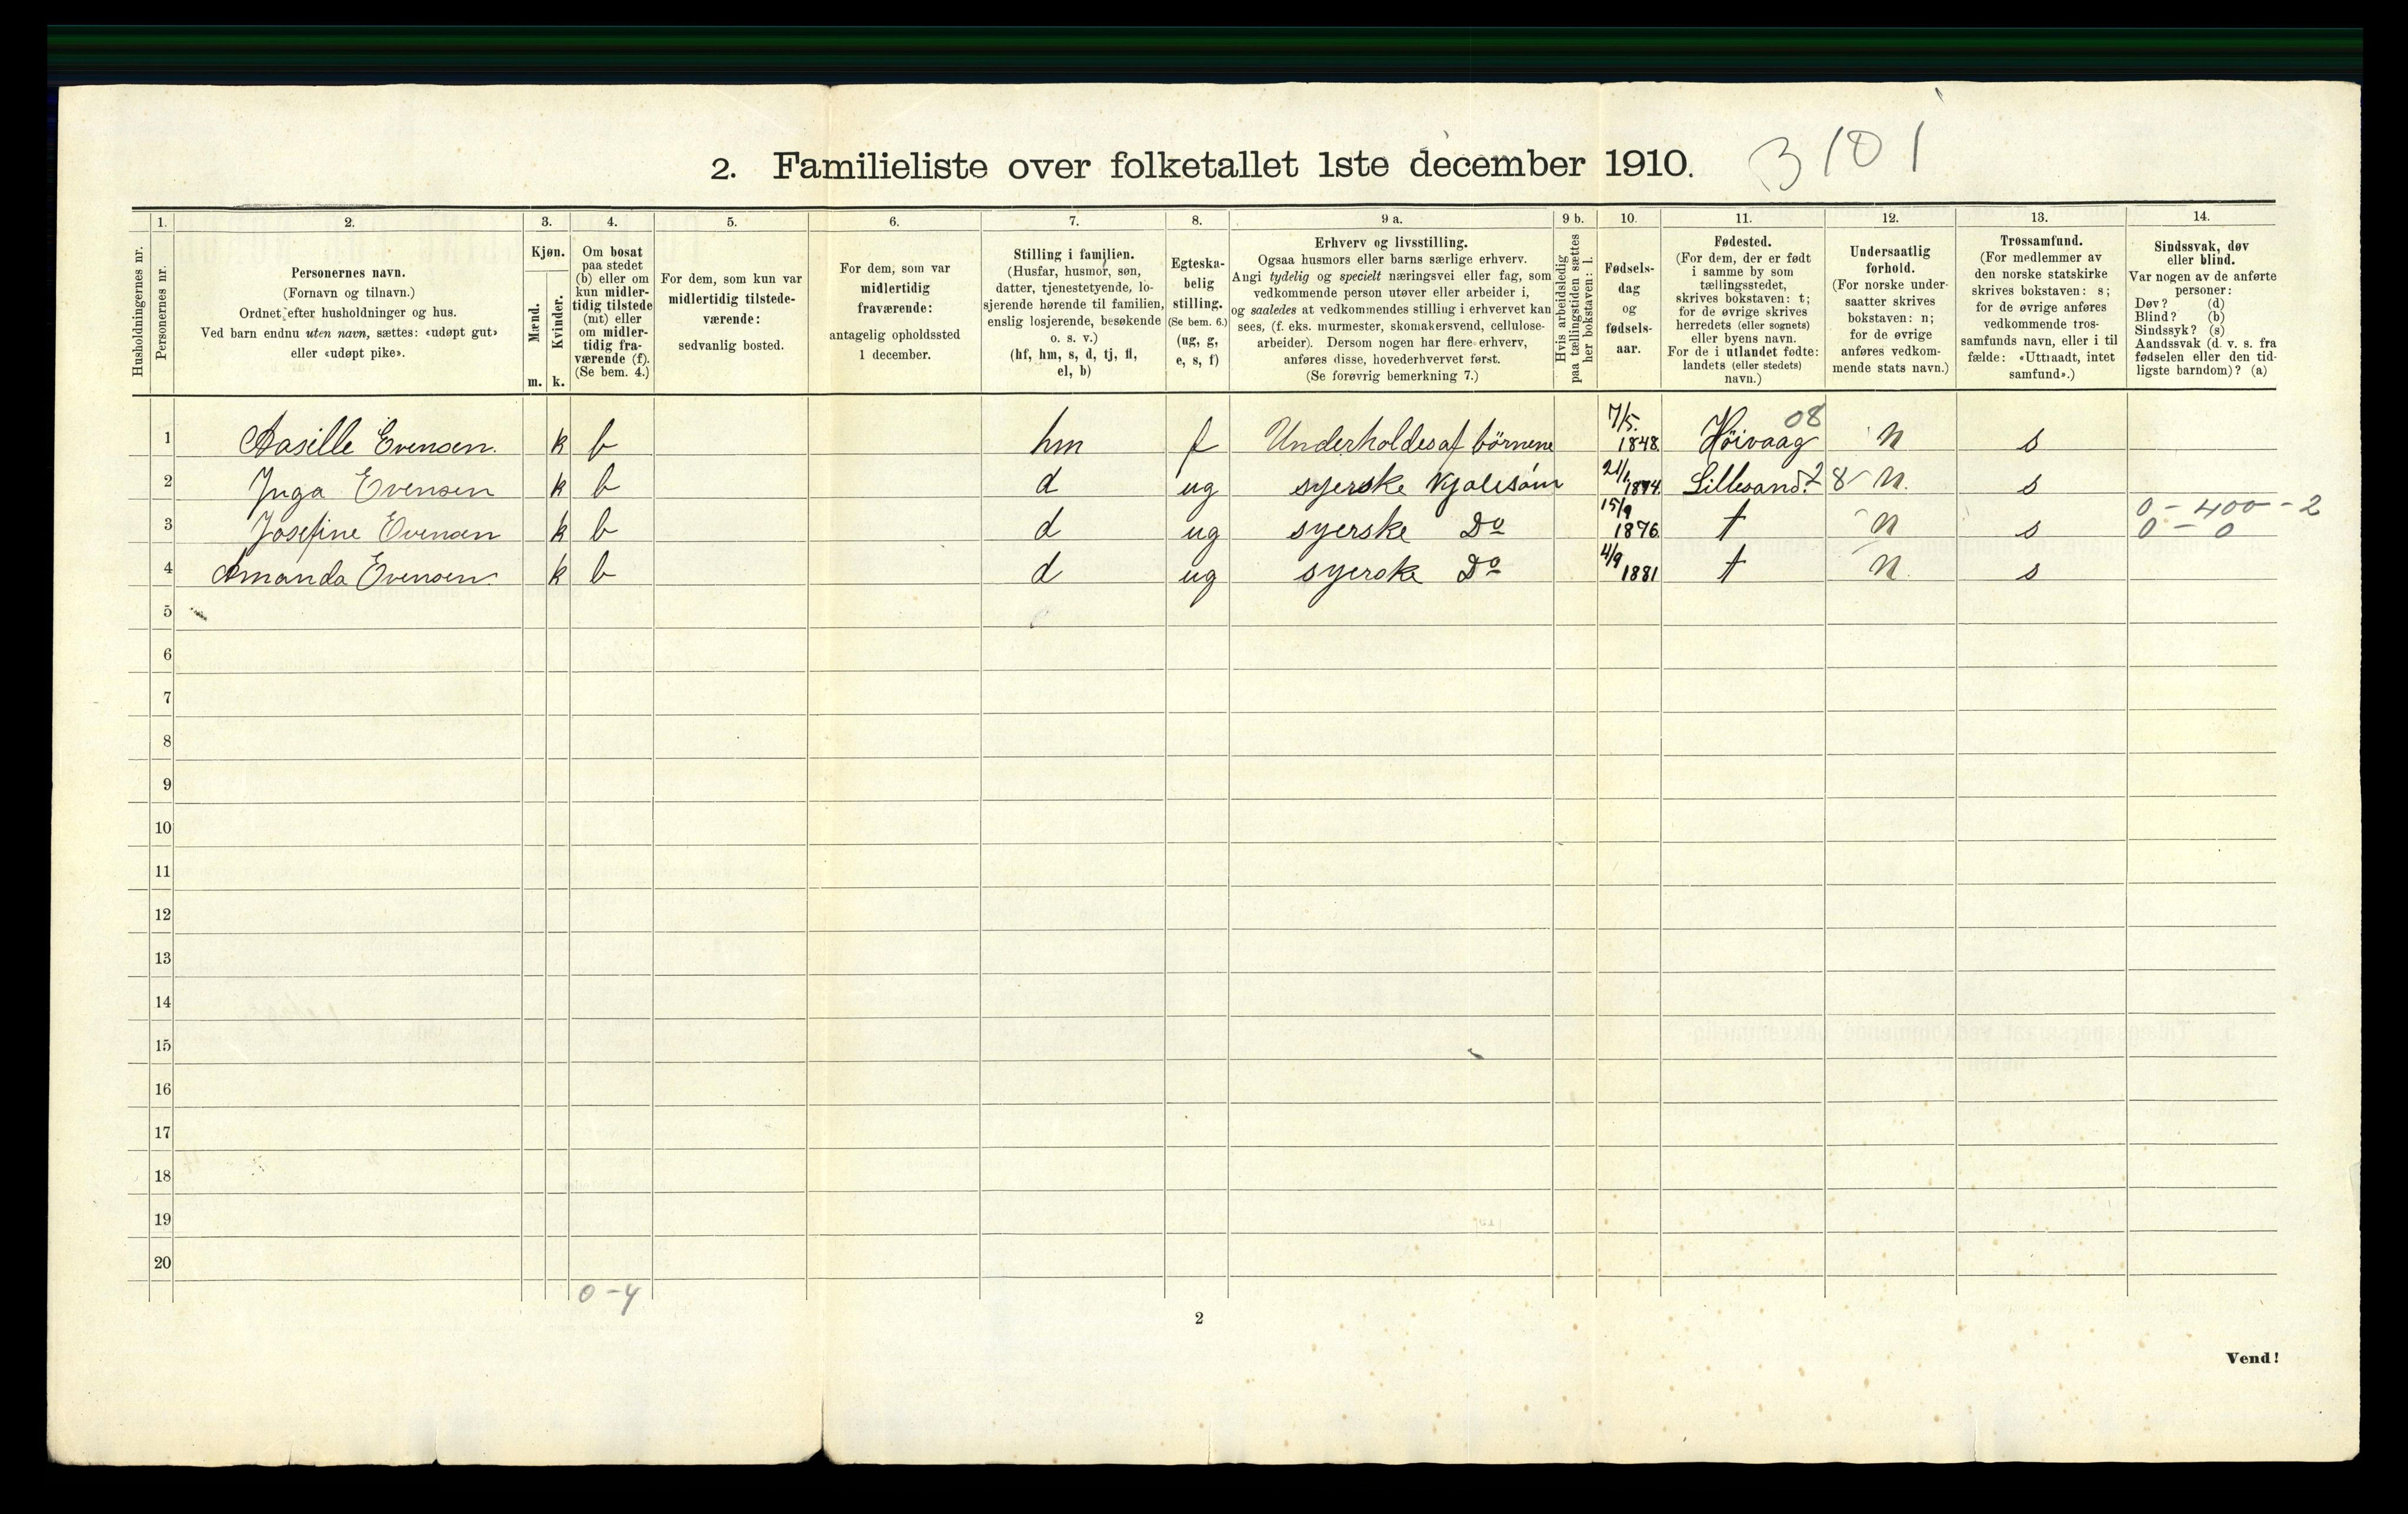 2. Familieliste over folketallet 1ste december 1910. 3101
1. 2. 3. 4. 5. 6. 7. 8. 9 a. 9 b. 10. 11. 12. 13. 14.
Husholdningernes nr.
Personernes nr.
Personernes navn.
(Fornavn og tilnavn.)
Ordnet efter husholdninger og hus.
Ved barn endnu uten navn, sættes: «udøpt gut»
eller «udøpt pike».
Kjøn.
Mænd.
Kvinder.
m. k.
Om bosat
paa stedet
(b) eller om
kun midler-
tidig tilstede
(mt) eller
om midler-
tidig fra-
værende (f).
(Se bem. 4.)
For dem, som kun var
midlertidig tilstede-
værende:
sedvanlig bosted.
For dem, som var
midlertidig
fraværende:
antagelig opholdssted
1 december.
Stilling i familien.
(Husfar, husmor, søn,
datter, tjenestetyende, lo-
sjerende hørende til familien,
enslig losjerende, besøkende
o. s. v.)
(hf, hm, s, d, tj, fl,
el, b)
Egteska-
belig
stilling.
(Se bem. 6.)
(ug, g,
e, s, f)
Erhverv og livsstilling.
Ogsaa husmors eller barns særlige erhverv.
Angi tydelig og specielt næringsvei eller fag, som
vedkommende person utøver eller arbeider i,
og saaledes at vedkommendes stilling i erhvervet kan
sees, (f. eks. murmester, skomakersvend, cellulose-
arbeider). Dersom nogen har flere erhverv,
anføres disse, hovederhvervet først.
(Se forøvrig bemerkning 7.)
Hvis arbeidsledig
paa tællingstiden sættes
her bokstaven: l.
Fødsels-
dag
og
fødsels-
aar.
Fødested.
(For dem, der er født
i samme by som
tællingsstedet,
skrives bokstaven: t;
for de øvrige skrives
herredets (eller sognets)
eller byens navn.
For de i utlandet fødte:
landets (eller stedets)
navn.)
Undersaatlig
forhold.
(For norske under-
saatter skrives
bokstaven: n;
for de øvrige
anføres vedkom-
mende stats navn.)
Trossamfund.
(For medlemmer av
den norske statskirke
skrives bokstaven: s;
for de øvrige anføres
vedkommende tros-
samfunds navn, eller i til
fælde: «Uttraadt, intet
samfund».)
Sindssvak, døv
eller blind.
Var nogen av de anførte
personer:
Døv? (d)
Blind? (b)
Sindssyk? (s)
Aandssvak (d. v. s. fra
fødselen eller den tid-
ligste barndom)? (a)
1 Aasille Evensen. k b hm f Underholdes af börnene 7/5. 1848. Höivaag 08 n s
2 Inga Evensen k b d ug syerske Kjolesöm 21/1 1874. Lillesand. 28 n. s
3 Josefine Evensen k b d ug syerske Do 15/9 1876. t n s 0 - 400 - 2
0 - 0
4 Amanda Evensen. k b d ug syerske Do 4/9 1881 t n. s
5
6
7
8
9
10
11
12
13
14
15
16
17
18
19
20
0 - 4
2
Vend!